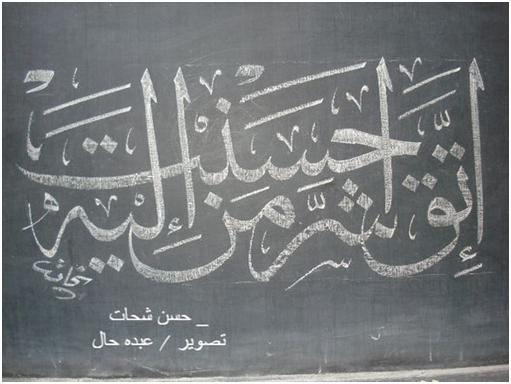 إتق شر من أحسنت إليه
شحات
_ حسن شحات
تصوير / عبده حال